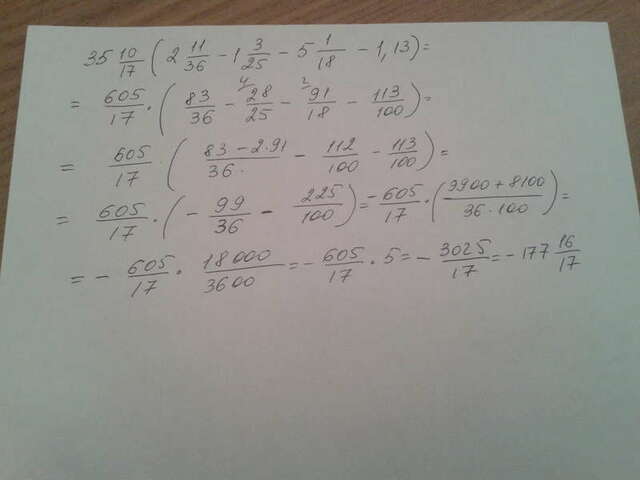 35 10/17 (2 11/36 - 1 3/25 - 5 1/18 - 1,13) =
= 605/17 · (83/36 - ⁴28/25 - ²91/18 - 113/100) =
= 605/17 · ((83 - 2·91)/36· - 112/100 - 113/100) =
= 605/17 · (- 99/36 - 225/100) = - 605/17 · ((9900 + 8100)/(36·100)) =
= - 605/17 · 18000/3600 = - 605/17 · 5 = - 3025/17 = - 177 16/17